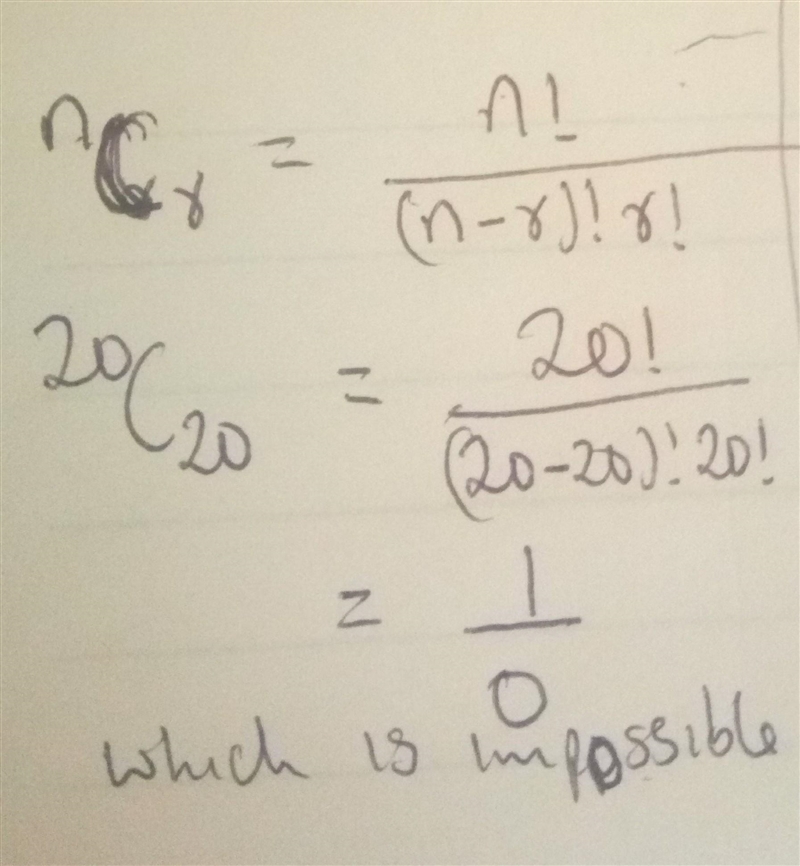 ⁿCᵣ = n! / (n-r)! r!
²⁰C₂₀ = 20! / (20-20)! 20!
= 1 / 0
which is impossible